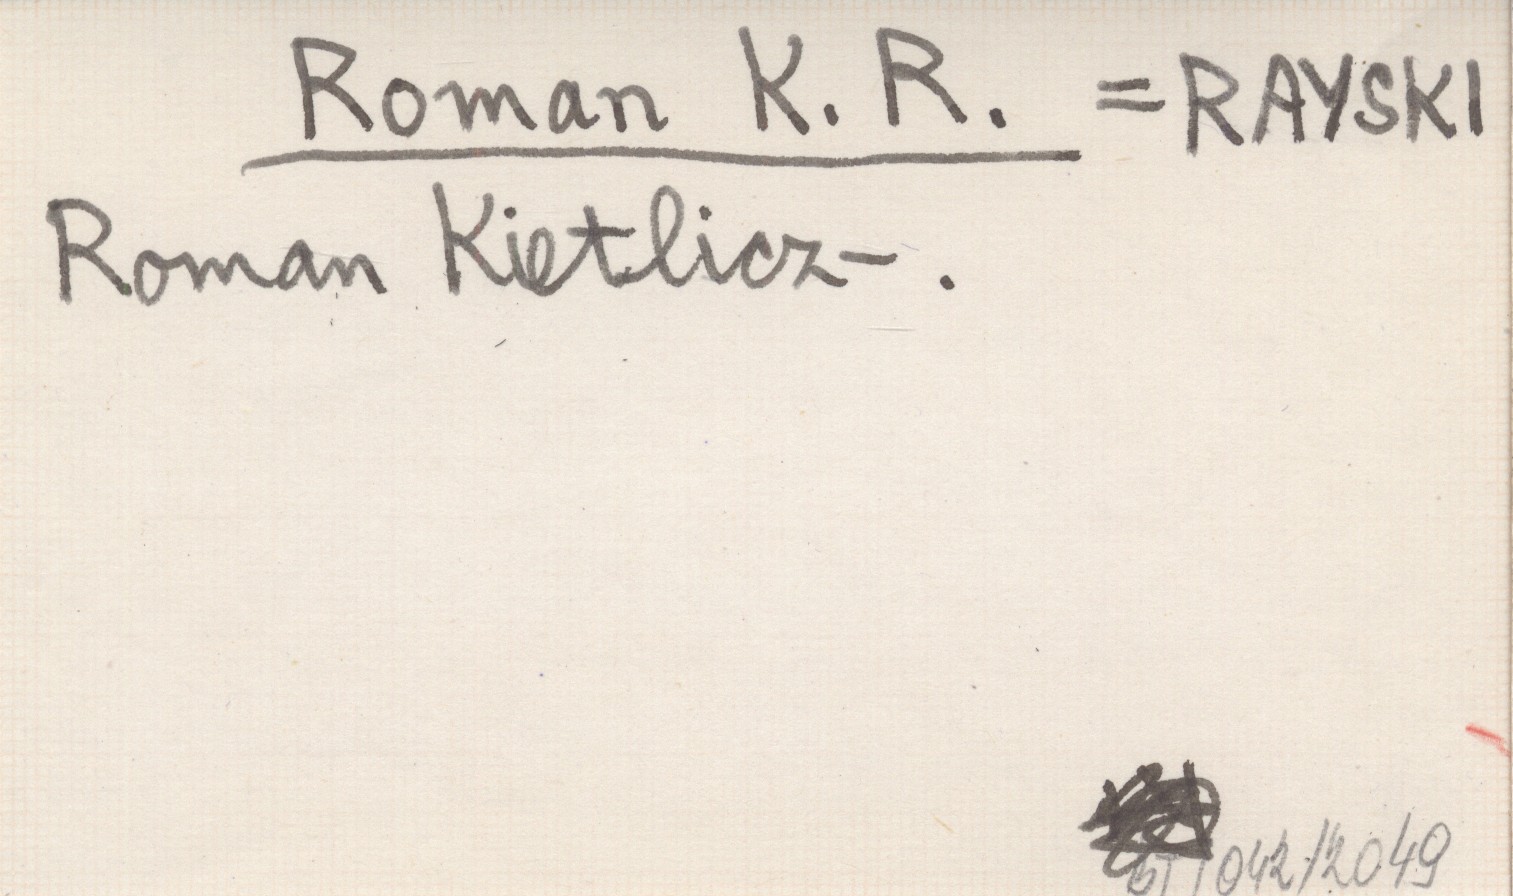 Roman K. R. = RAYSKI
Roman Kietlicz- .
1042/2049